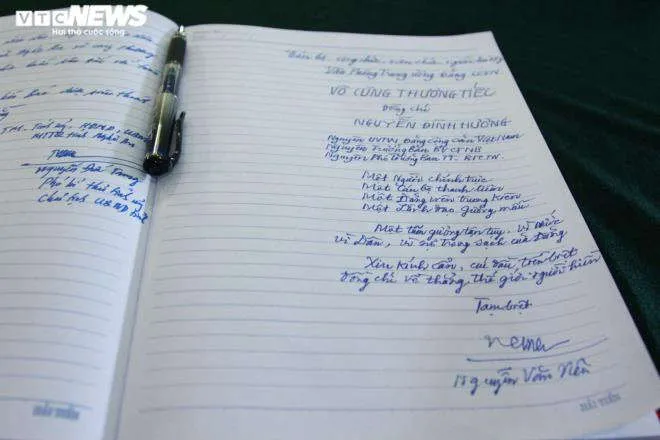 VTC NEWS
Hơi thở cuộc sống
TM. Tỉnh uỷ, HĐND, UBND
MTTQ tỉnh Nghệ An
Nguyễn Đức Trung
Phó bí thư tỉnh uỷ
Chủ tịch UBND tỉnh
HẢI TIẾN
Cán bộ, công chức, viên chức, người lao động
Văn Phòng Trung ương Đảng CSVN
VÔ CÙNG THƯƠNG TIẾC
Đồng chí
NGUYỄN ĐÌNH HƯƠNG
Nguyên UVTW Đảng cộng sản Việt Nam
Nguyên Trưởng Ban BV CTNB
Nguyên Phó trưởng Ban TT. BTCTW.
Một Người chính trực
Một Cán bộ thanh liêm
Một Đảng viên trung kiên
Một Lãnh đạo gương mẫu
Một tấm gương tận tụy, vì nước
vì Dân, vì sự trong sạch của Đảng
Xin kính cẩn, cúi đầu, tiễn biệt
đồng chí về thế giới người hiền
Tạm biệt
Nguyễn Văn Nên
HẢI TIẾN